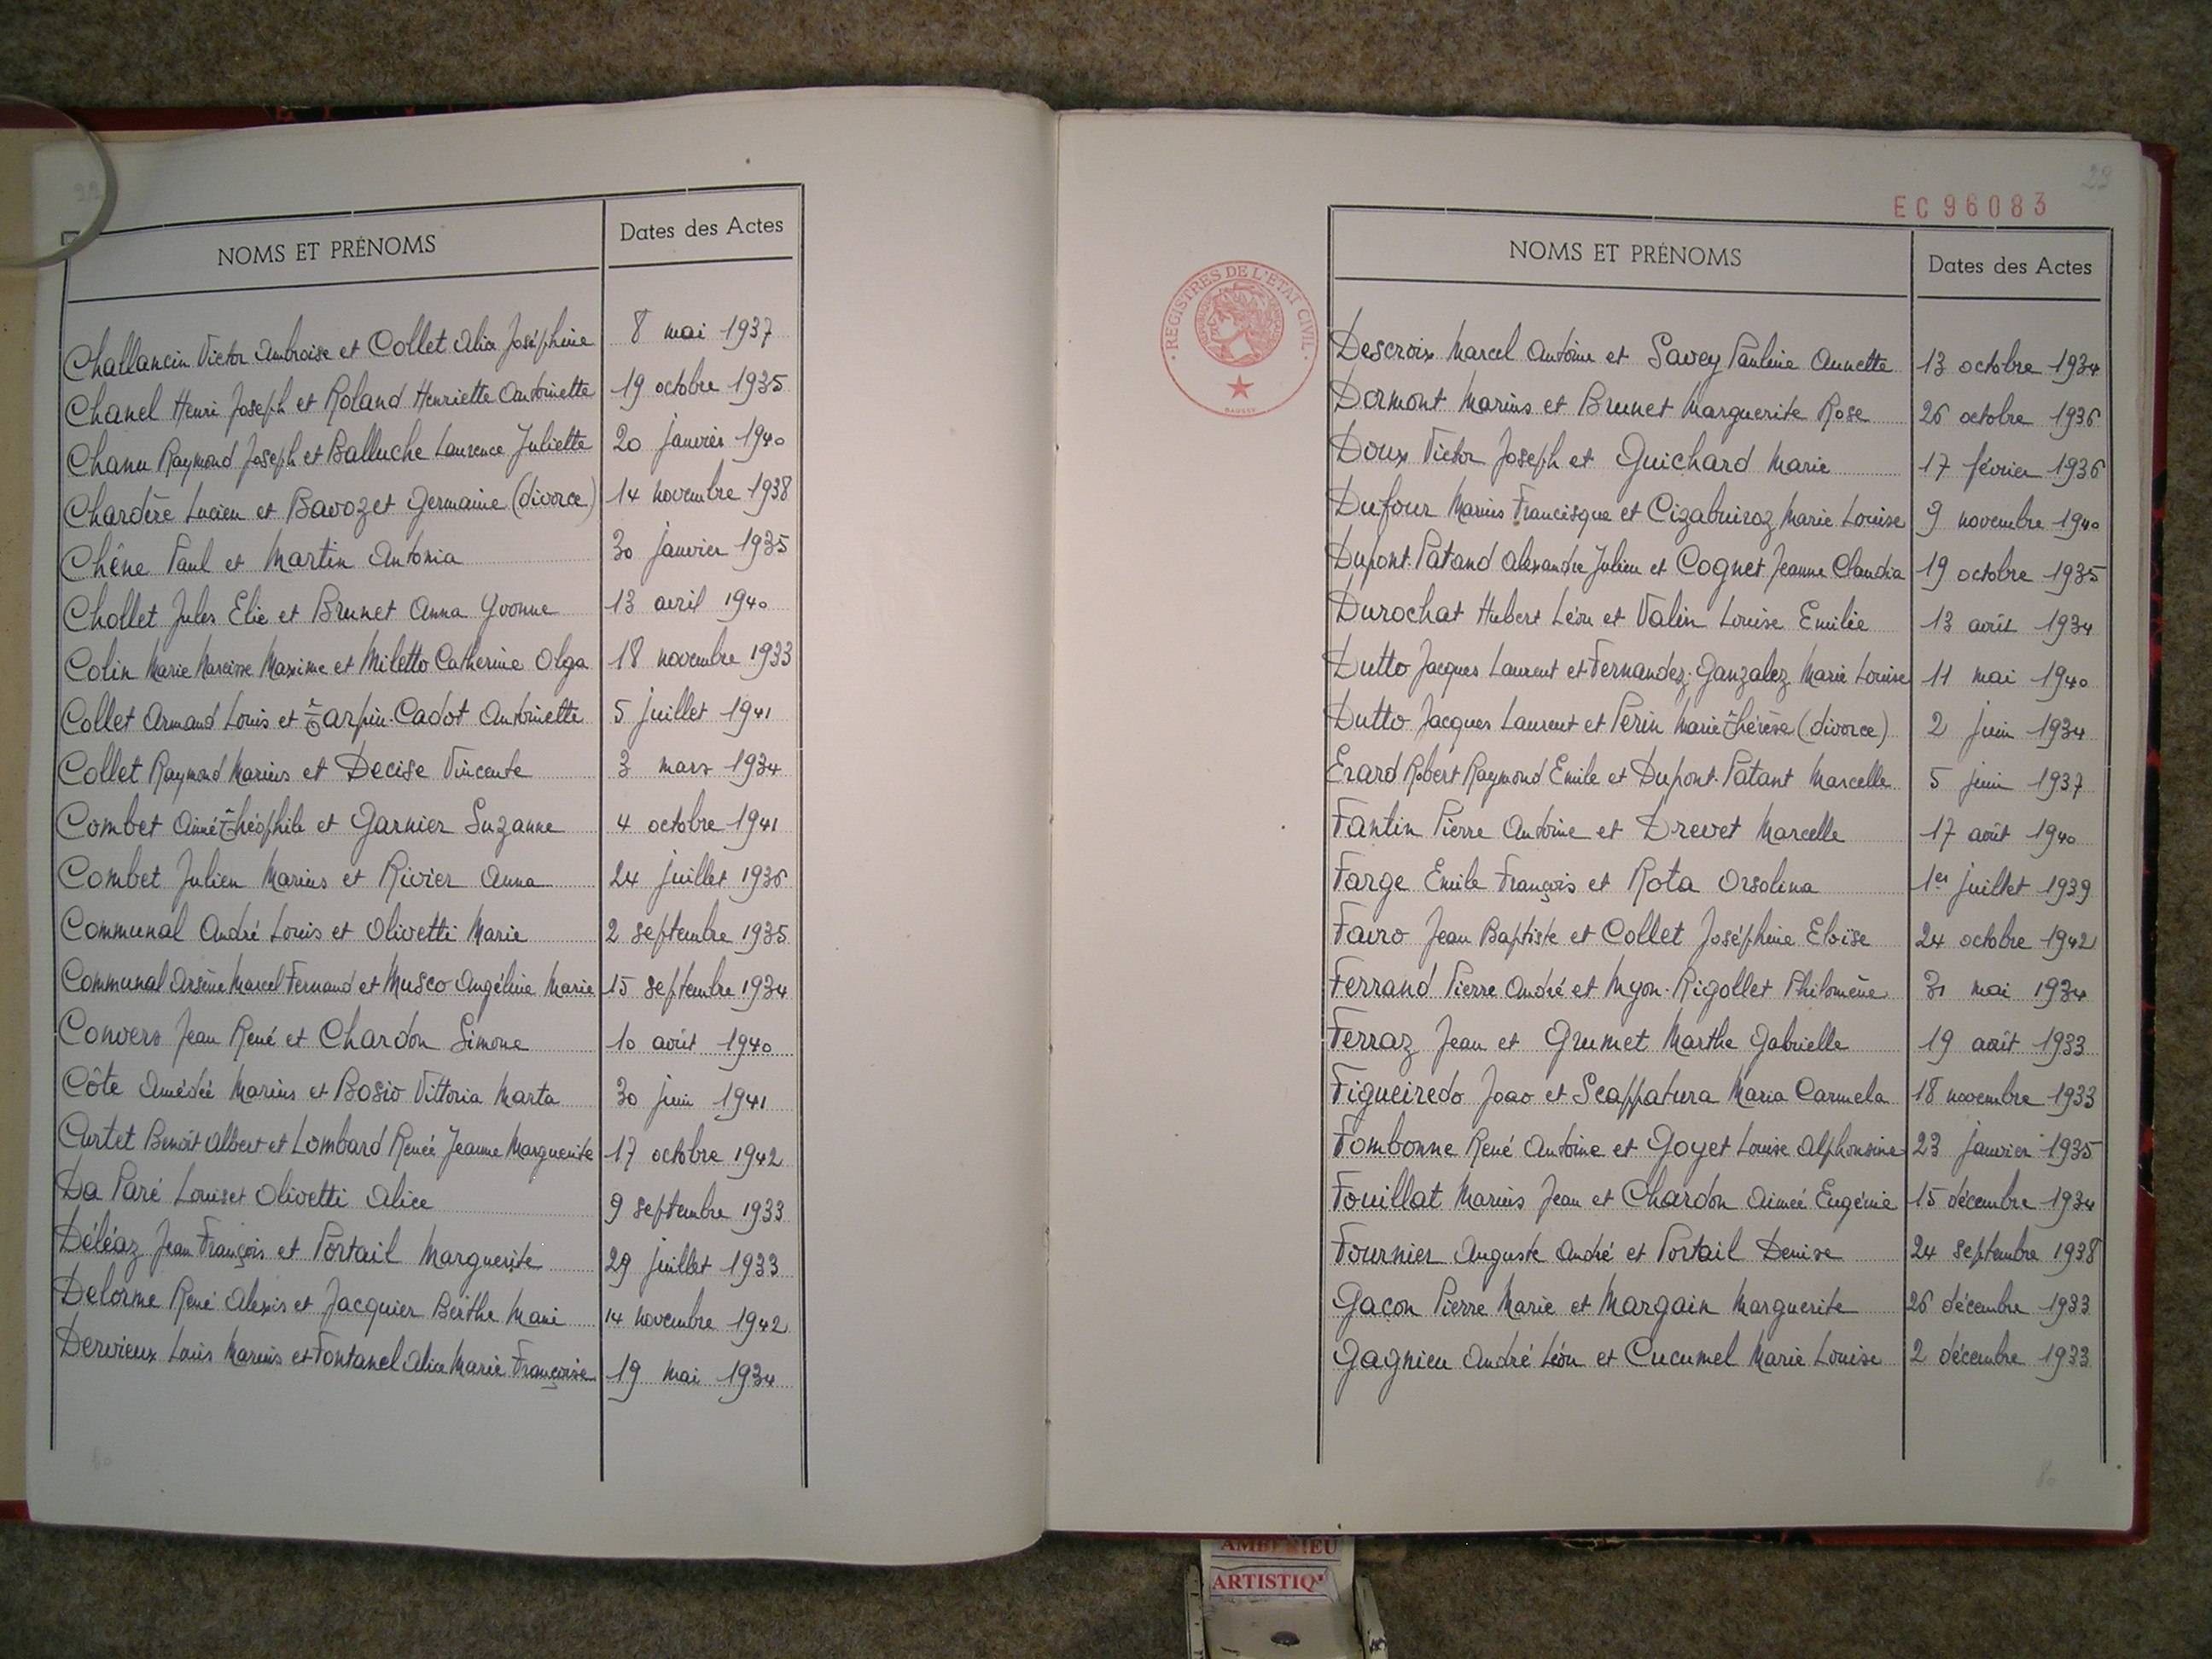 NOMS ET PRÉNOMS
Dates des Actes
Challancin Victor Ambroise et Collet Alix Joséphine 8 mai 1937
Chanel Henri Joseph et Roland Henriette Antoinette 19 octobre 1935
Chanu Raymond Joseph et Balluche Laurence Juliette 20 janvier 1940
Chardère Lucien et Bavozet Germaine (divorce) 14 novembre 1938
Chêne Paul et Martin Antonia 30 janvier 1935
Chollet Jules Elie et Brunet Anna Yvonne 13 avril 1940
Colin Marie Narcisse Maxime et Miletto Catherine Olga 18 novembre 1933
Collet Armand Louis et Tarpin-Cadot Antoinette 5 juillet 1941
Collet Raymond Marius et Decise Vincente 3 mars 1934
Combet Aimé Théophile et Garnier Suzanne 4 octobre 1941
Combet Julien Marius et Rivier Anna 24 juillet 1936
Communal André Louis et Olivetti Marie 2 septembre 1935
Communal Arsène Marcel Fernand et Musco Angéline Marie 15 septembre 1934
Convers Jean René et Chardon Simone 10 août 1940
Côte Amédée Marius et Bosio Vittoria Marta 30 juin 1941
Curtet Benoît Albert et Lombard Renée Jeanne Marguerite 17 octobre 1942
Da Paré Louis et Olivetti Alice 9 septembre 1933
Déléaz Jean François et Portail Marguerite 29 juillet 1933
Delorme René Alexis et Jacquier Berthe Marie 14 novembre 1942
Dervieux Louis Marius et Fontanel Alice Marie Françoise 19 mai 1934
80
29
EC96083
REGISTRES DE L'ÉTAT CIVIL
NOMS ET PRÉNOMS
Dates des Actes
Descroix Marcel Antoine et Savey Pauline Annette 13 octobre 1934
Dormont Marius et Brunet Marguerite Rose 26 octobre 1936
Doux Victor Joseph et Guichard Marie 17 février 1936
Dufour Marius Francisque et Cizabuiroz Marie Louise 9 novembre 1940
Dupont-Patand Alexandre Julien et Cognet Jeanne Claudia 19 octobre 1935
Durochat Hubert Léon et Valin Louise Emilie 13 août 1934
Dutto Jacques Laurent et Fernandez-Ganzalez Marie Louise 11 mai 1940
Dutto Jacques Laurent et Perin Marie Thérèse (divorce) 2 juin 1934
Erard Robert Raymond Emile et Dupont-Patant Marcelle 5 juin 1937
Fantin Pierre Antoine et Drevet Marcelle 17 août 1940
Farge Emile François et Rota Orsolina 1er juillet 1939
Favro Jean Baptiste et Collet Joséphine Eloïse 24 octobre 1942
Ferrand Pierre André et Myon-Rigollet Philomène 31 mai 1934
Ferraz Jean et Grumet Marthe Gabrielle 19 août 1933
Figueiredo Joao et Scappatura Maria Carmela 18 novembre 1933
Fombonne René Antoine et Goyet Louise Alphonsine 23 janvier 1935
Fouillat Marius Jean et Chardon Aimée Eugénie 15 décembre 1934
Fournier Auguste André et Portail Denise 24 septembre 1938
Gaçon Pierre Marie et Margain Marguerite 26 décembre 1933
Gagnieu André Léon et Cucumel Marie Louise 2 décembre 1933
80
AMBERIEU
ARTISTIQ